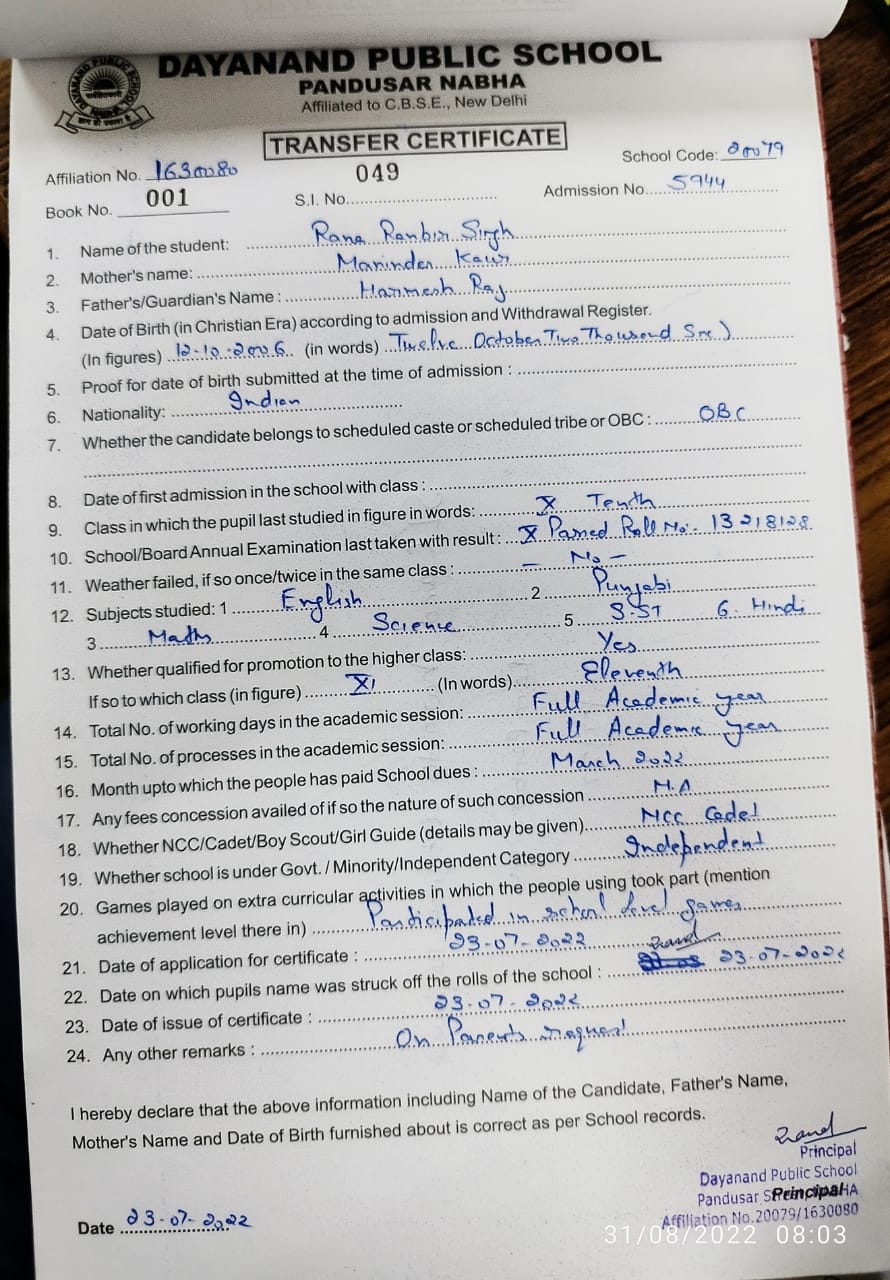 DAYANAND PUBLIC SCHOOL
PANDUSAR NABHA
Affiliated to C.B.S.E., New Delhi
DAYANAND PUBLIC SCHOOL
TRANSFER CERTIFICATE
Affiliation No. 1630080 School Code: 20079
Book No. 001 S.I. No. 049 Admission No. 5944
1. Name of the student: Rana Ranbir Singh
2. Mother's name: Maninder Kaur
3. Father's/Guardian's Name : Harmesh Raj
4. Date of Birth (in Christian Era) according to admission and Withdrawal Register.
(In figures) 12-10-2006 (in words) Twelve October Two Thousand Six)
5. Proof for date of birth submitted at the time of admission :
6. Nationality: Indian
7. Whether the candidate belongs to scheduled caste or scheduled tribe or OBC : OBC
8. Date of first admission in the school with class :
9. Class in which the pupil last studied in figure in words: X Tenth
10. School/Board Annual Examination last taken with result : X Passed Roll No. - 13218128
11. Weather failed, if so once/twice in the same class : - No -
12. Subjects studied: 1 English 2 Punjabi
3 Maths 4 Science 5 S.ST 6. Hindi
13. Whether qualified for promotion to the higher class: Yes
If so to which class (in figure) XI (In words) Eleventh
14. Total No. of working days in the academic session: Full Academic year
15. Total No. of processes in the academic session: Full Academic year
16. Month upto which the people has paid School dues : March 2022
17. Any fees concession availed of if so the nature of such concession N.A
18. Whether NCC/Cadet/Boy Scout/Girl Guide (details may be given) NCC Cadet
19. Whether school is under Govt. / Minority/Independent Category Independent
20. Games played on extra curricular activities in which the people using took part (mention
achievement level there in) Participated in school level games
21. Date of application for certificate : 23-07-2022
22. Date on which pupils name was struck off the rolls of the school : 23-07-2022
23. Date of issue of certificate : 23-07-2022
24. Any other remarks : On Parents request
I hereby declare that the above information including Name of the Candidate, Father's Name,
Mother's Name and Date of Birth furnished about is correct as per School records.
Principal
Dayanand Public School
Pandusar
Principal
Affiliation No.20079/1630080
Date 23-07-2022
31/08/2022 08:03